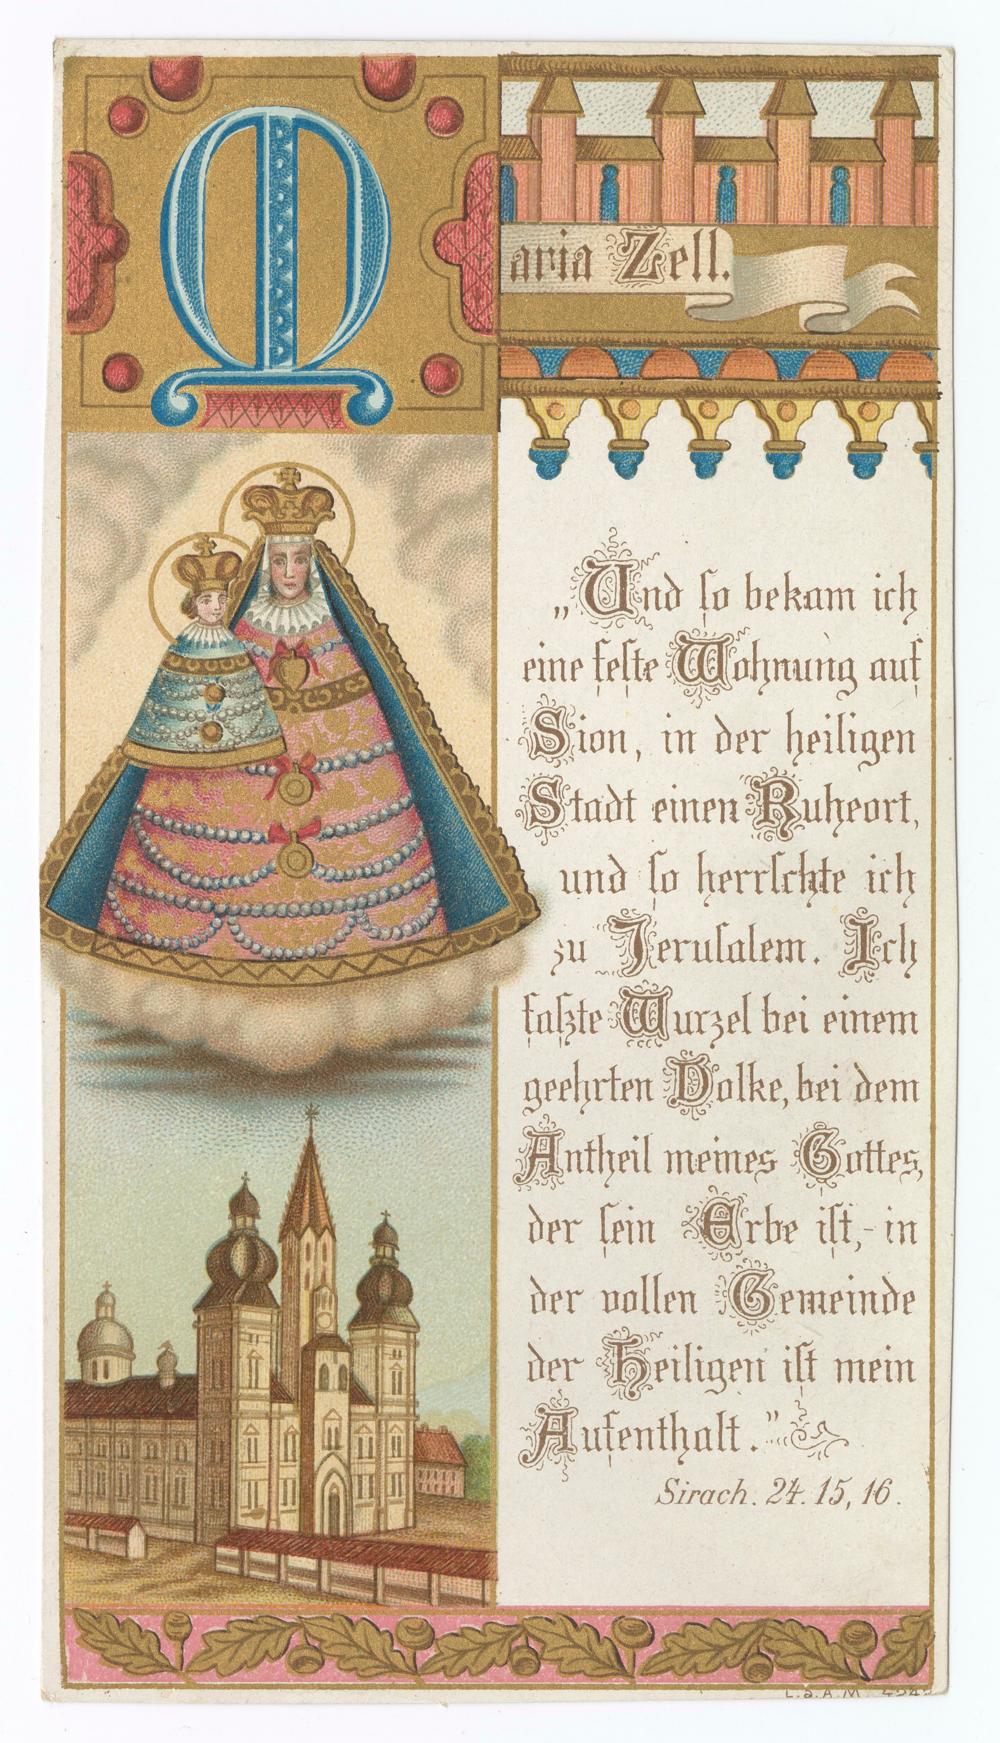 Maria Zell.
„Und ſo bekam ich
eine feſte Wohnung auf
Sion, in der heiligen
Stadt einen Ruheort,
und ſo herrſchte ich
zu Jeruſalem. Ich
faſzte Wurzel bei einem
geehrten Volke, bei dem
Antheil meines Gottes,
der ſein Erbe iſt,- in
der vollen Gemeinde
der Heiligen iſt mein
Aufenthalt.”
Sirach. 24. 15, 16.